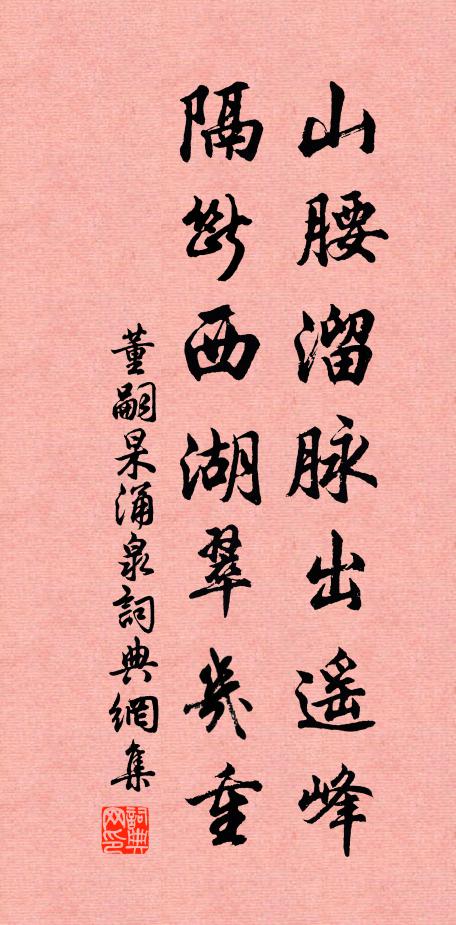 山腰溜脉出遥峰
隔断西湖翠几重
董嗣杲涌泉詞典網集
詞典网印